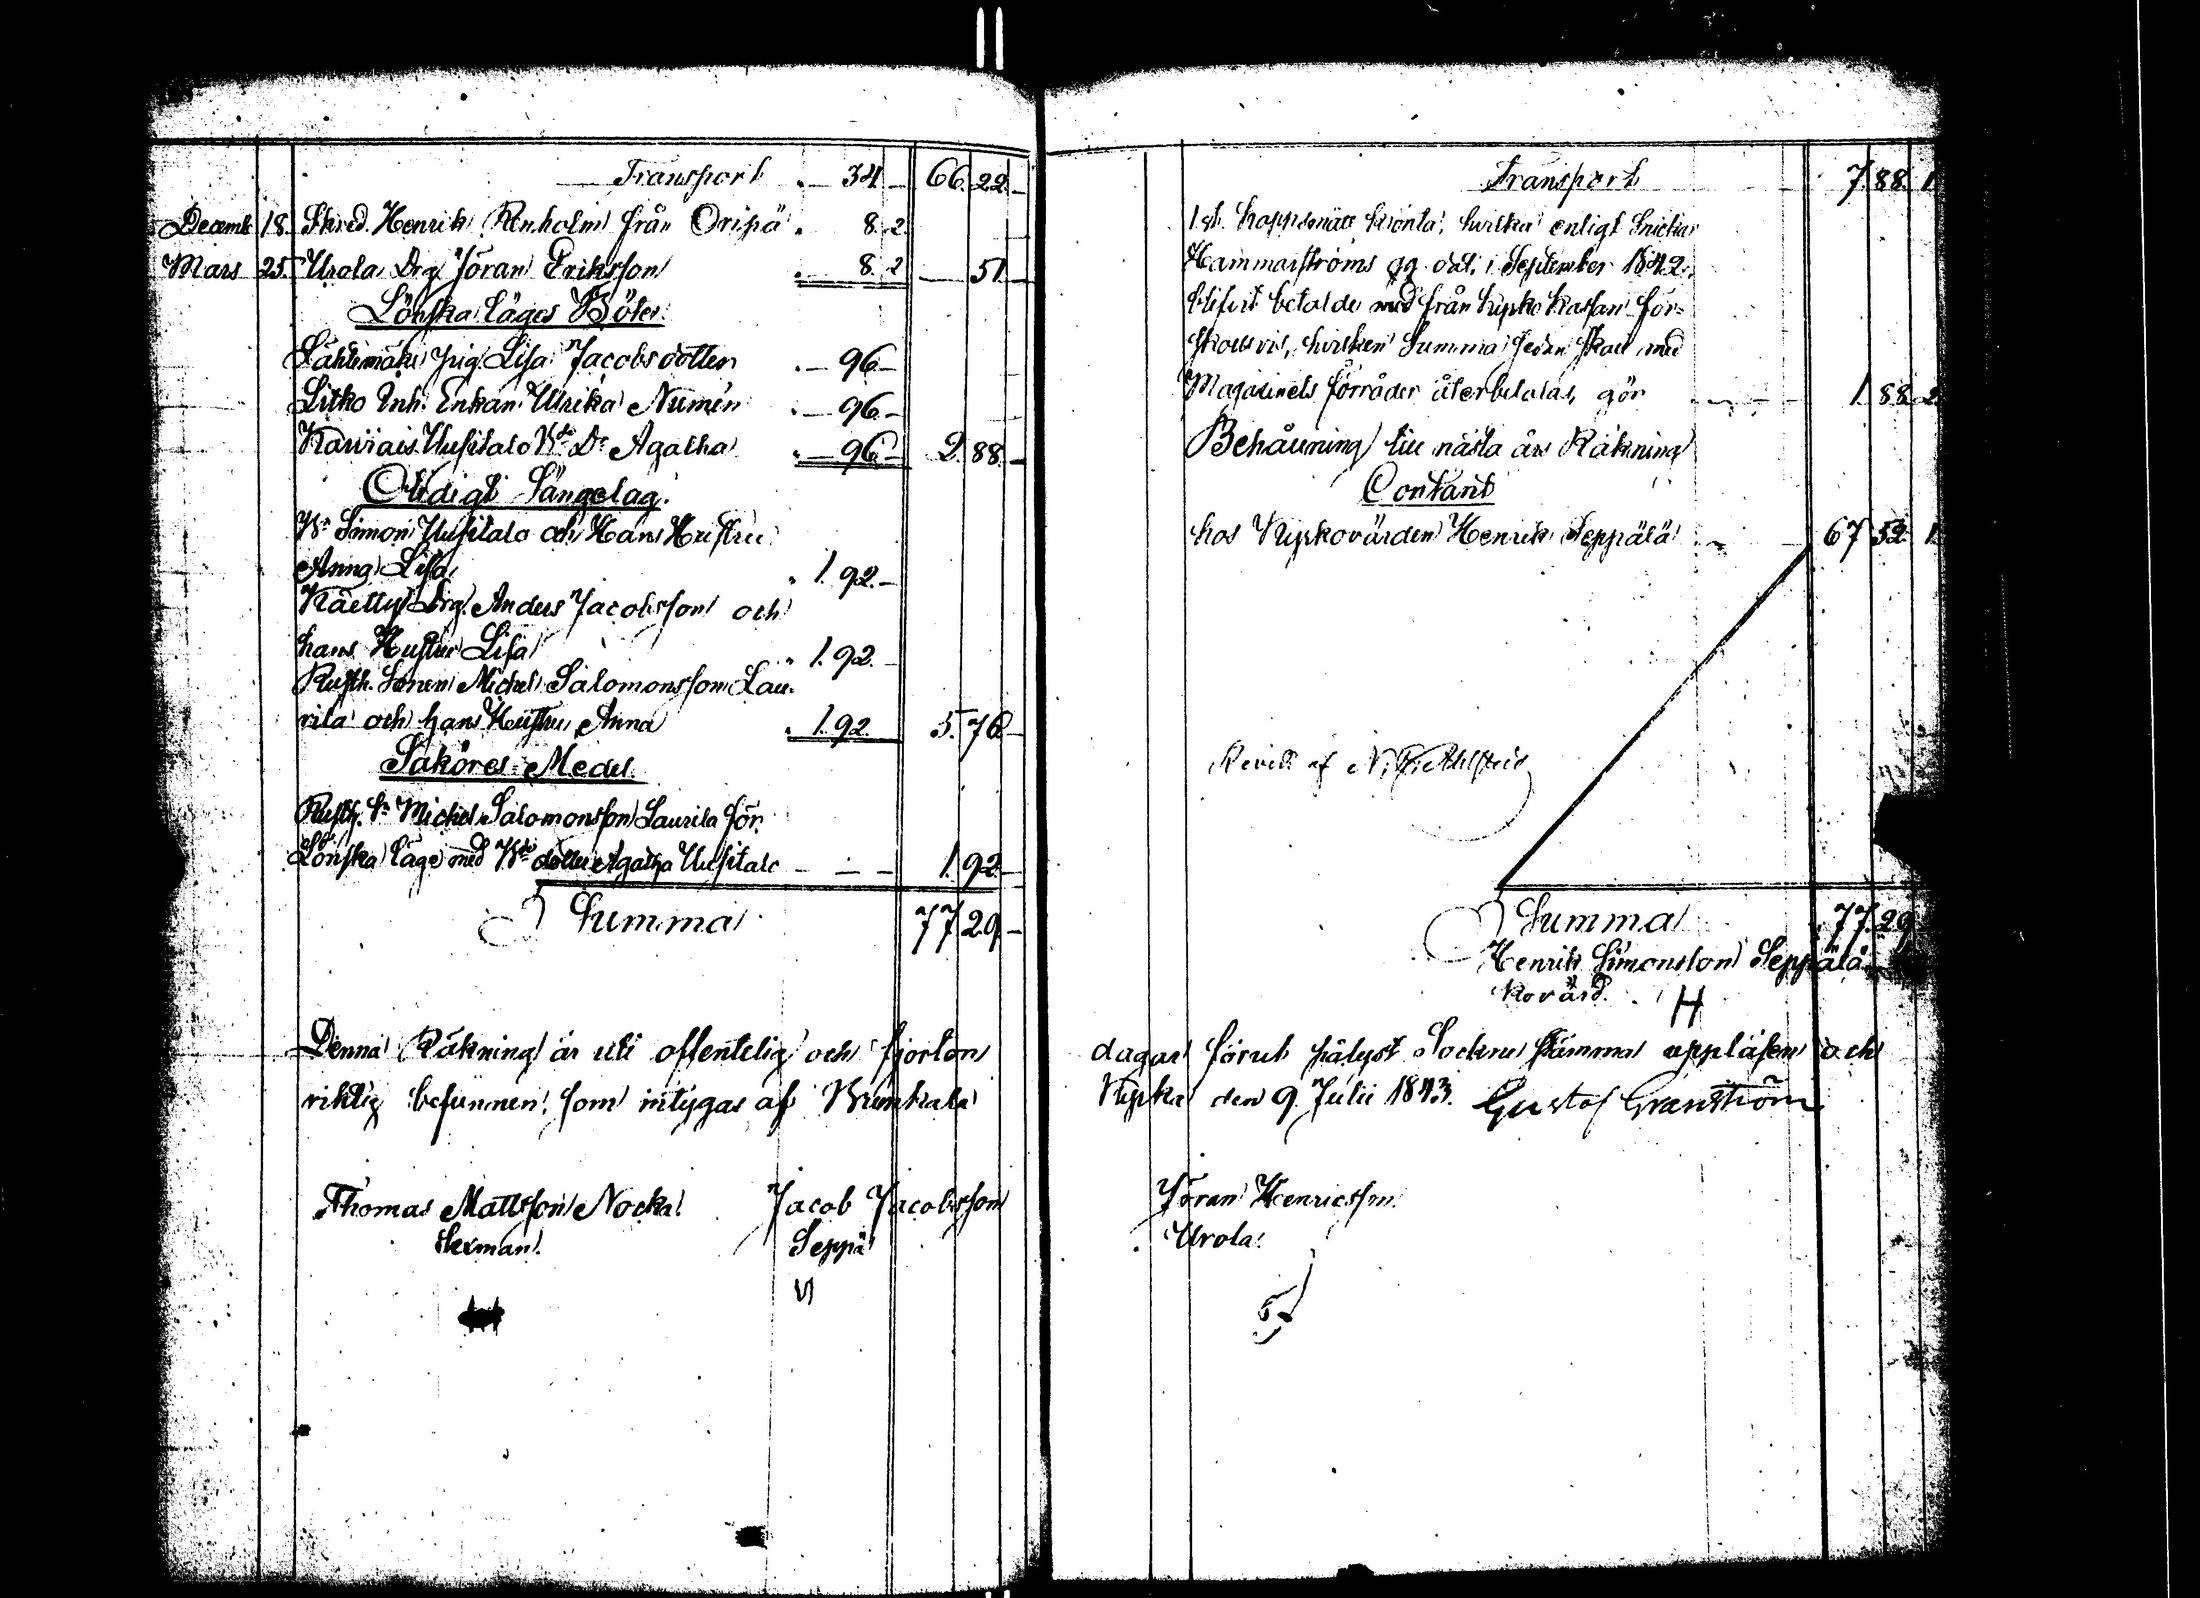 Transport " — 34 — 66. 22. —
Decemb 18. Skred. Henrik Renholm från Oripä " 8. 2
Mars 25. Urola Drg Jöran Eriksson " 8. 2 — 51. —
Lönska läges Böter.
Lähtemäki pig. Lisa Jacobsdotter " — 96 —
Litko Inh. Enkan Ulrika Numén " — 96 —
Karviais Uusitalo Dr Agatha " — 96 — 2. 88. —
Otidigt Sängelag.
Simon Uusitalo och Hans Hustru
Anna Lisa " 1. 92. —
Käetty Drg. Anders Jacobsson och
hans Hustru Lisa " 1. 92. —
Rusth. Sonen Michel Salomonsson Lau-
rila och hans Hustru Anna " 1. 92. 5. 76 —
Saköres Medel.
Rusth. Sn Michel Salomonsson Laurila för
Lönska läge med dotter Agatha Uusitalo — — — 1. 92 —
Summa 77 29 —
Denna Räkning är uti offentelig och fjorton
riktig befunnen, som intygas af
Thomas Mattsson Nocka. Jacob Jacobsson
Sexman. Seppä
Transport 7. 88. 1.
1 st. hvilka enligt Snickar
Hammarströms qq. dat. i September 1842.
blifvit betalde med från Kyrko Kassan för-
skottsvis, hvilken Summa sedan skall med
Magasinets förråder återbetalas, gör 1. 88. 2.
Behållning till nästa års Räkning
Contant
hos Kyrkovärden Henrik Seppälä 67 52. 1.
Revid. af
Summa 77. 29
Henrik Simonsson Seppälä
Kovärd. H
dagar förut pålyst Sockne stämma uppläsen och
Kyrka den 9. Julii 1843. Gustaf Granström
Jöran Henricsson
Urola.